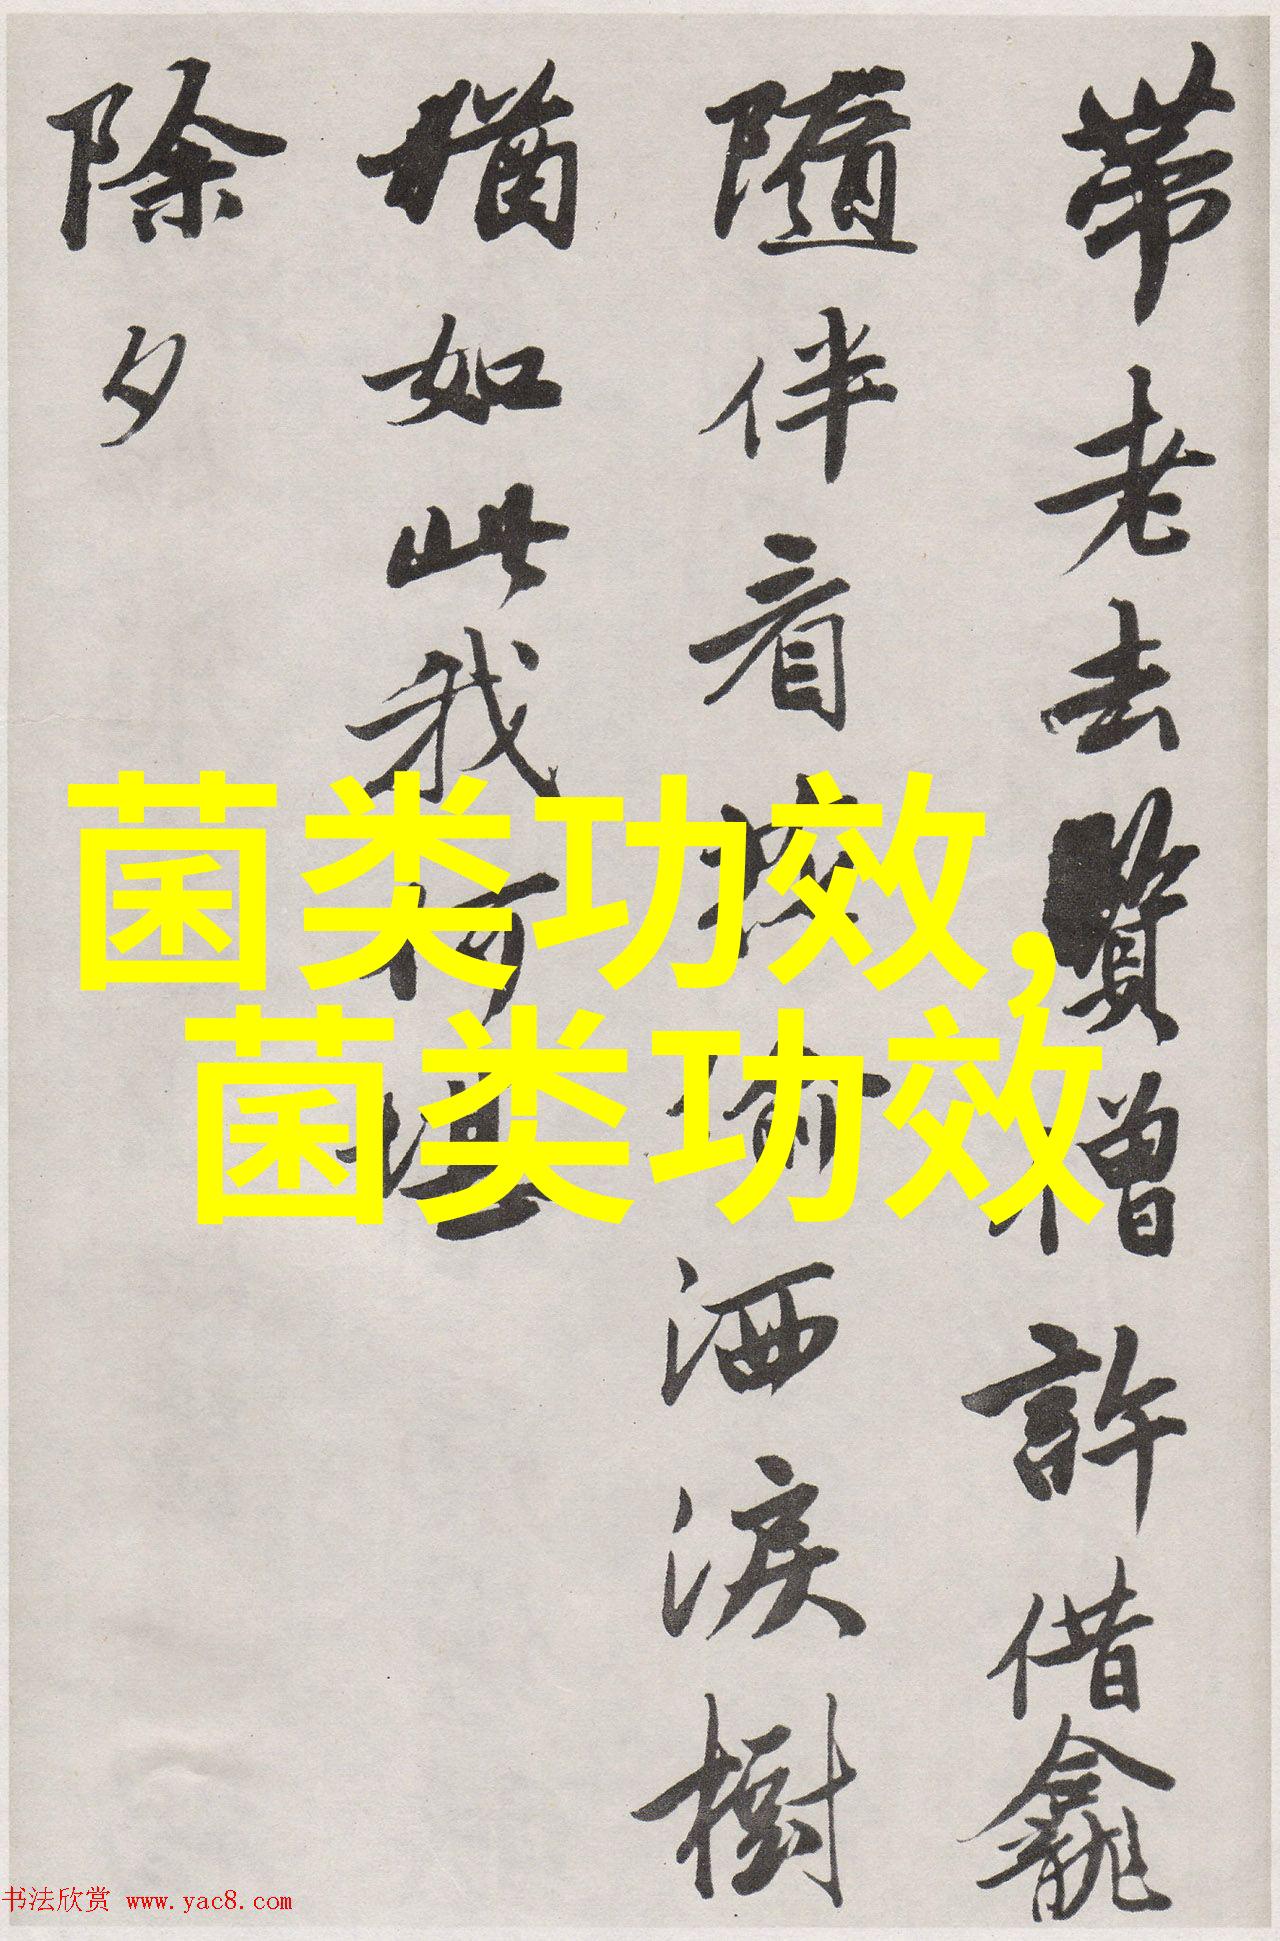 带老去賢僧許借龕
隨伴看
洒淚樹
猶如此我何堪
除夕
菌类功效,
菌类功效
书法欣赏 www.yac8.com